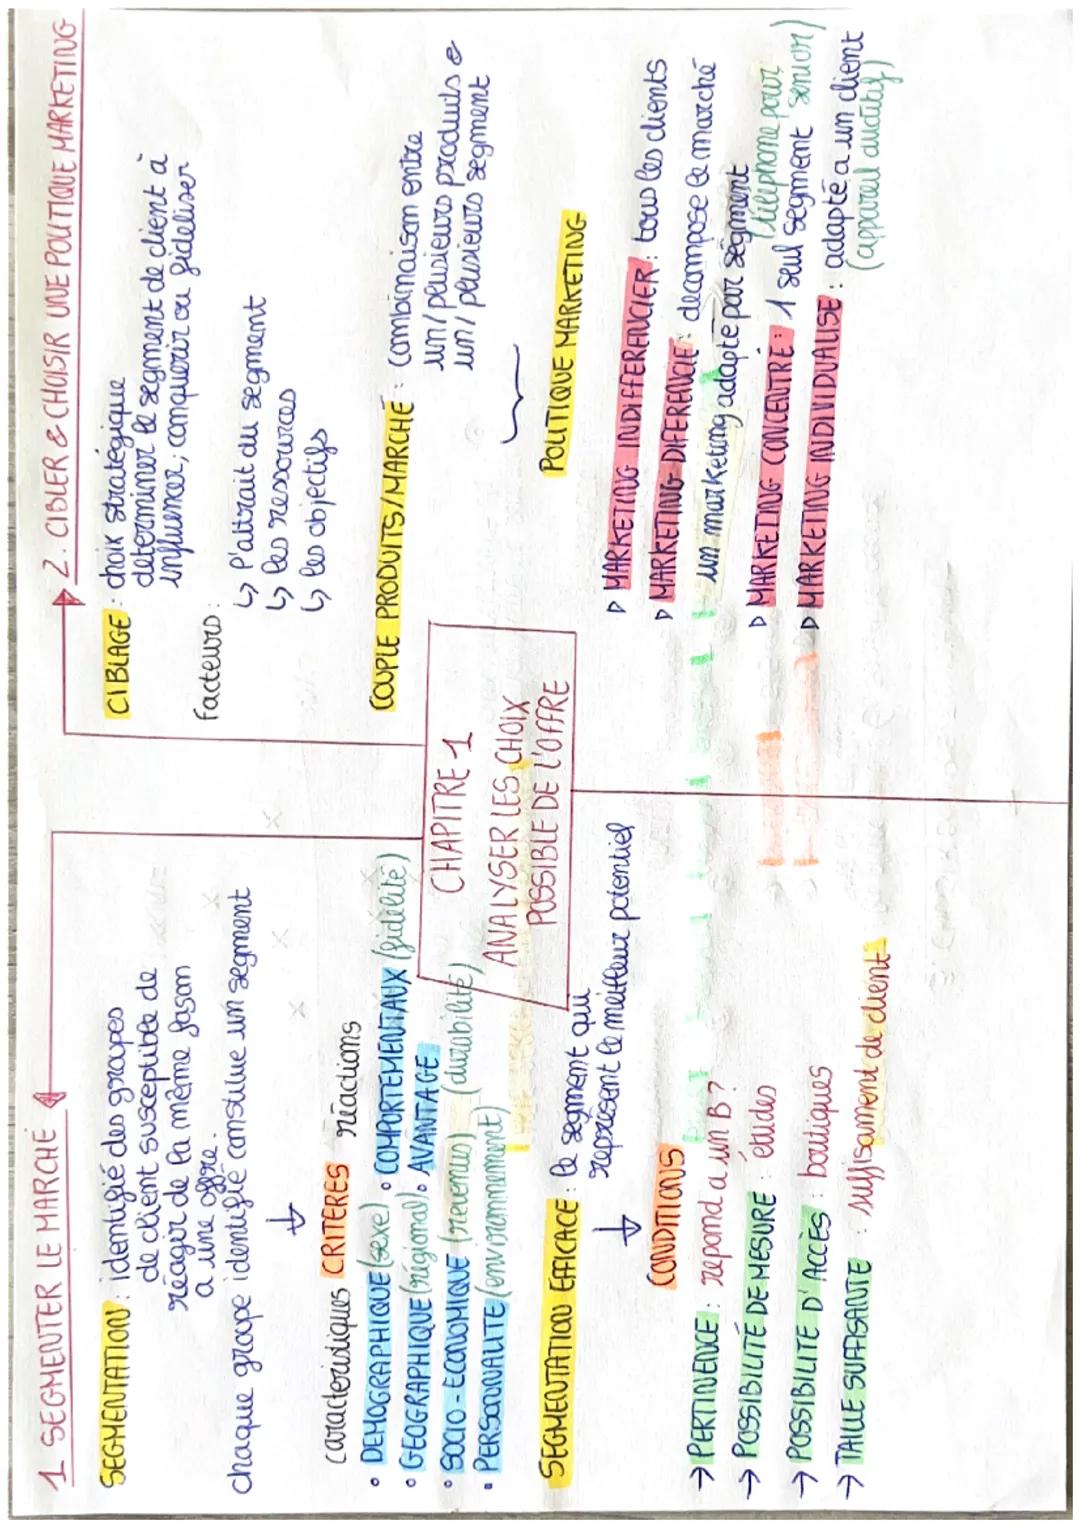 CHAPITRE 1
ANALYSER LES CHOIX
POSSIBLE DE L'OFFRE
1 SEGMENTER LE MARCHE
SEGMENTATION : identifié des groupes
de client susceptible de
réagir de la même fason
a une offre.
chaque groupe identifié constitue un segment
↓
caracteristiques CRITERES réactions
• DEMOGRAPHIQUE (sexe) • COMPORTEMENTAUX (fidélité)
• GEOGRAPHIQUE (régional) • AVANTAGE
• SOCIO-ECONOMIQUE (revenus) (durabilité)
• PERSONNALITE (environnement)
SEGMENTATION EFFICACE : le segment qui
represent le meilleur potentiel
↓
CONDITIONS
→ PERTINENCE : repond a un B ?
→ POSSIBILITÉ DE MESURE : études
→ POSSIBILITE D'ACCÈS : boutiques
→ TAILLE SUFFISANTE : suffisament de client
2. CIBLER & CHOISIR UNE POLITIQUE MARKETING
CIBLAGE : choix stratégique
déterminer le segment de client à
influencer, conquerir ou fideliser
Facteurs :
↳ l'attrait du segment
↳ les ressources
↳ les objectifs
COUPLE PRODUITS/MARCHÉ : combinaison entre
un/plusieurs produits &
un/plusieurs segment
POLITIQUE MARKETING
▷ MARKETING INDIFFERENCIER : tous les clients
▷ MARKETING DIFERENCIE : decompose le marché
un marketing adapté par segment
▷ MARKETING CONCENTRÉ : 1 seul segment (téléphone pour senior)
▷ MARKETING INDIVIDUALISE : adapté a un client
(appareil auditif)